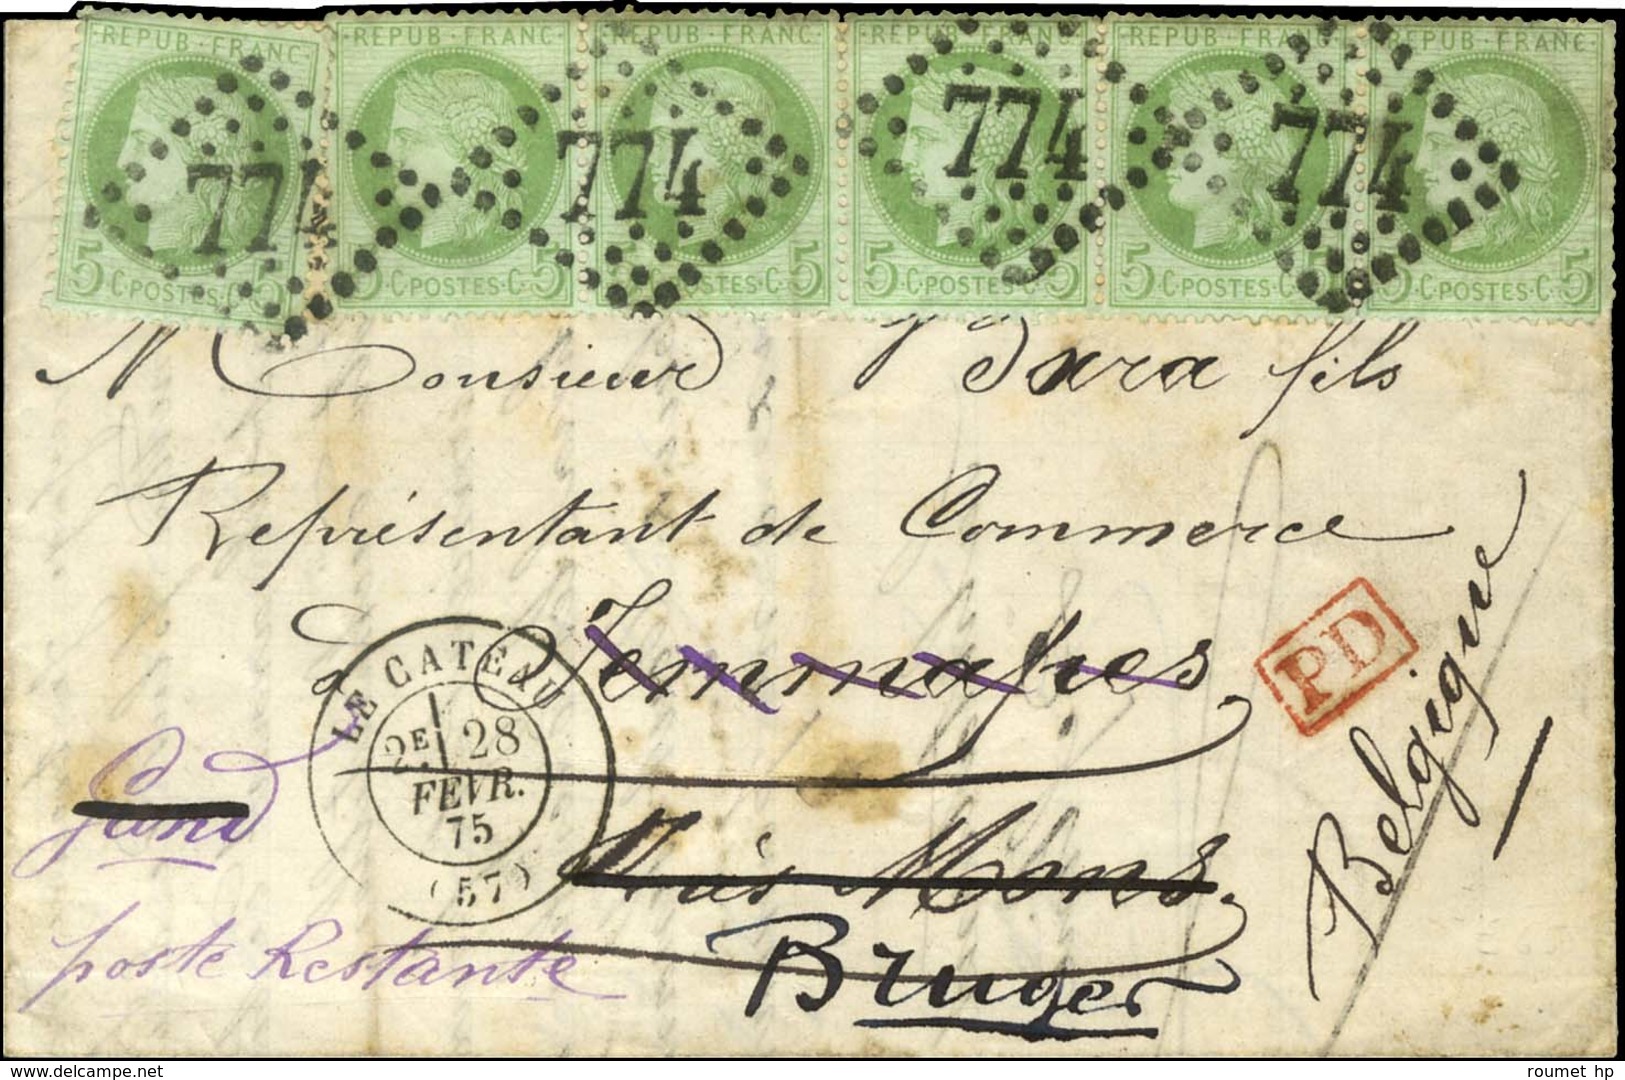 REPUB·FRANC· REPUB·FRANC· REPUB·FRANC· REPUB·FRANC· REPUB·FRANC· REPUB·FRANC·
774 774 774 774
5·C·POSTES·C·5 5·C·POSTES·C·5 5·C·POSTES·C·5 5·C·POSTES·C·5 5·C·POSTES·C·5 5·C·POSTES·C·5
Monsieur Bara fils
Représentant de Commerce
Jemmapes
près Mons.
Belgique
PD
LE CATEAU
2E 28
FEVR.
75
(57)
Gand
poste Restante
Bruges
roumet hp